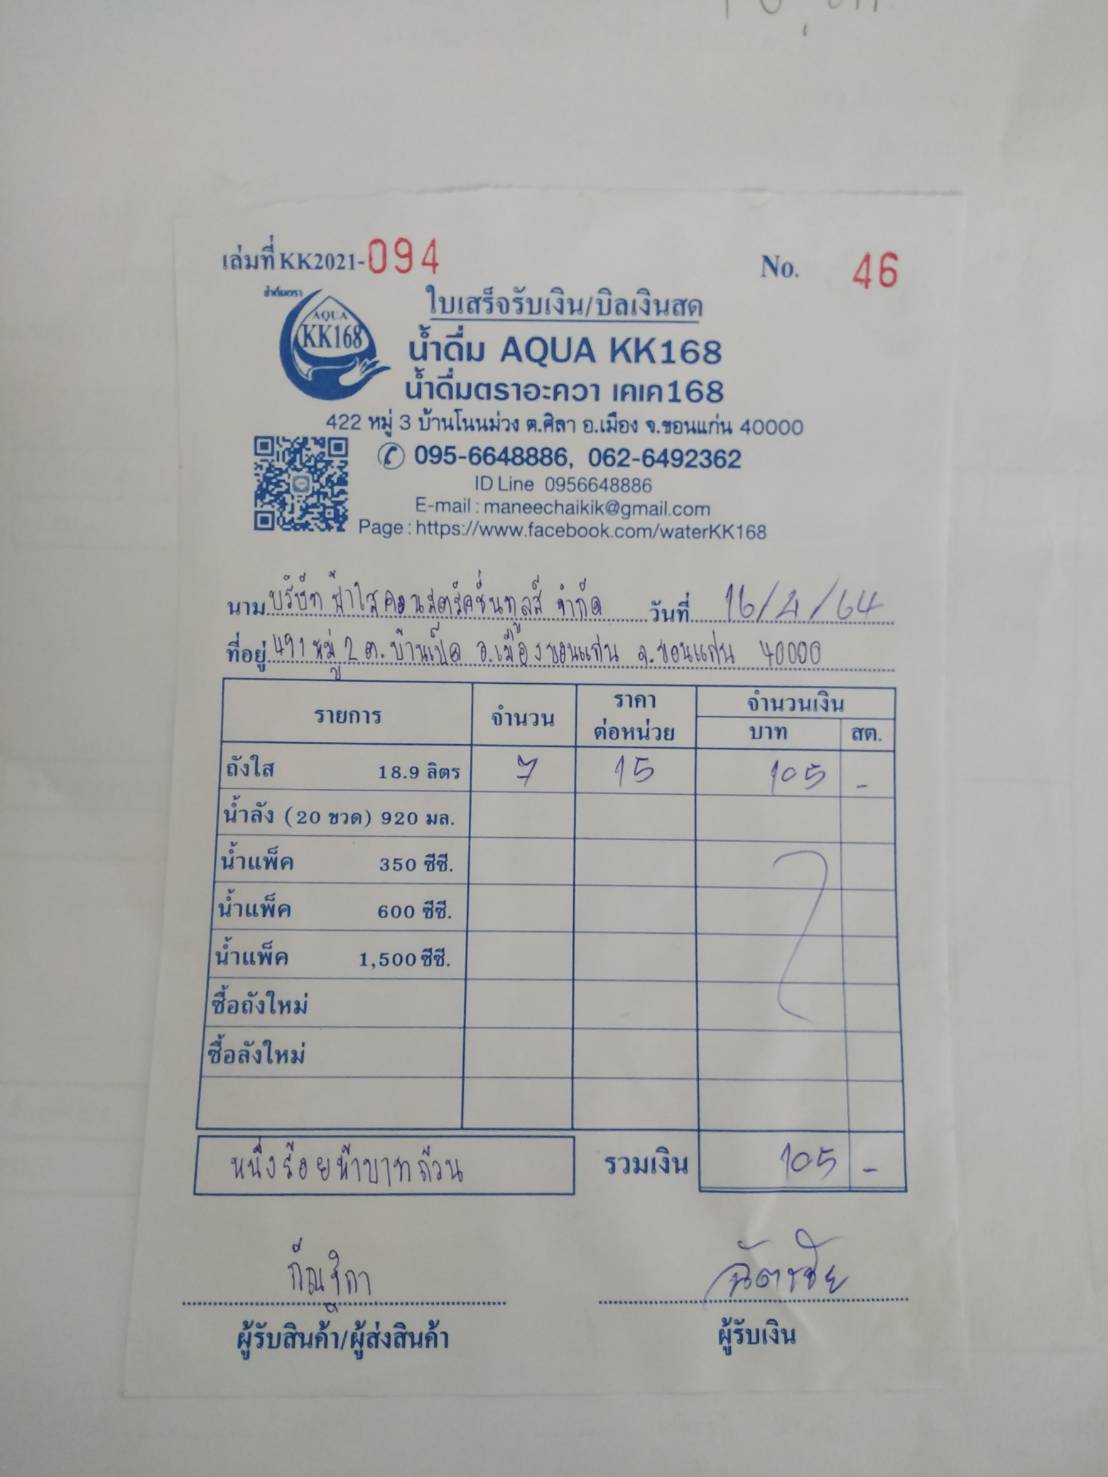 เล่มที่ KK2021-094 No. 46
น้ำดื่มตรา
AQUA
KK168
ใบเสร็จรับเงิน/บิลเงินสด
น้ำดื่ม AQUA KK168
น้ำดื่มตราอะควา เคเค168
422 หมู่ 3 บ้านโนนม่วง ต.ศิลา อ.เมือง จ.ขอนแก่น 40000
095-6648886, 062-6492362
ID Line 0956648886
E-mail : maneechaikik@gmail.com
Page : https://www.facebook.com/waterKK168
นาม บริษัท ฟ้าใสคอนสตรัคชั่นทูลส์ จำกัด วันที่ 16/4/64
ที่อยู่ 491 หมู่ 2 ต.บ้านเป็ด อ.เมืองขอนแก่น จ.ขอนแก่น 40000
รายการ จำนวน ราคา ต่อหน่วย จำนวนเงิน
บาท สต.
ถังใส 18.9 ลิตร 7 15 105 -
น้ำลัง (20 ขวด) 920 มล.
น้ำแพ็ค 350 ซีซี.
น้ำแพ็ค 600 ซีซี.
น้ำแพ็ค 1,500 ซีซี.
ซื้อถังใหม่
ซื้อลังใหม่
หนึ่งร้อยห้าบาทถ้วน รวมเงิน 105 -
ฉัตรชัย
ผู้รับสินค้า/ผู้ส่งสินค้า ผู้รับเงิน